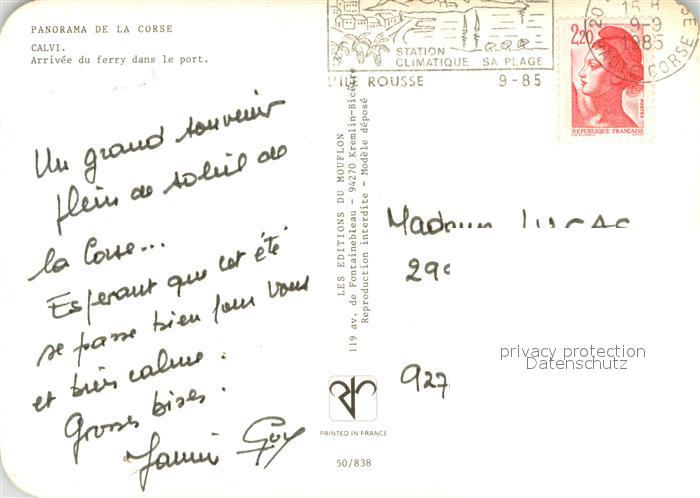 PANORAMA DE LA CORSE
CALVI.
Arrivée du ferry dans le port.
Un grand souvenir
plein de soleil de
la Corse...
Esperant que cet été
se passe bien pour vous
et bien calme.
Grosses bises.
Guy
LES EDITIONS DU MOUFLON
119 av. de Fontainebleau - 94270 Kremlin-Bicêtre
Reproduction interdite - Modèle déposé
PRINTED IN FRANCE
50/838
STATION
CLIMATIQUE SA PLAGE
ROUSSE 9-85
15 H
9-9
1985
CORSE
2,20
POSTES
REPUBLIQUE FRANÇAISE
Madame LUCAS
29
927
privacy protection
Datenschutz